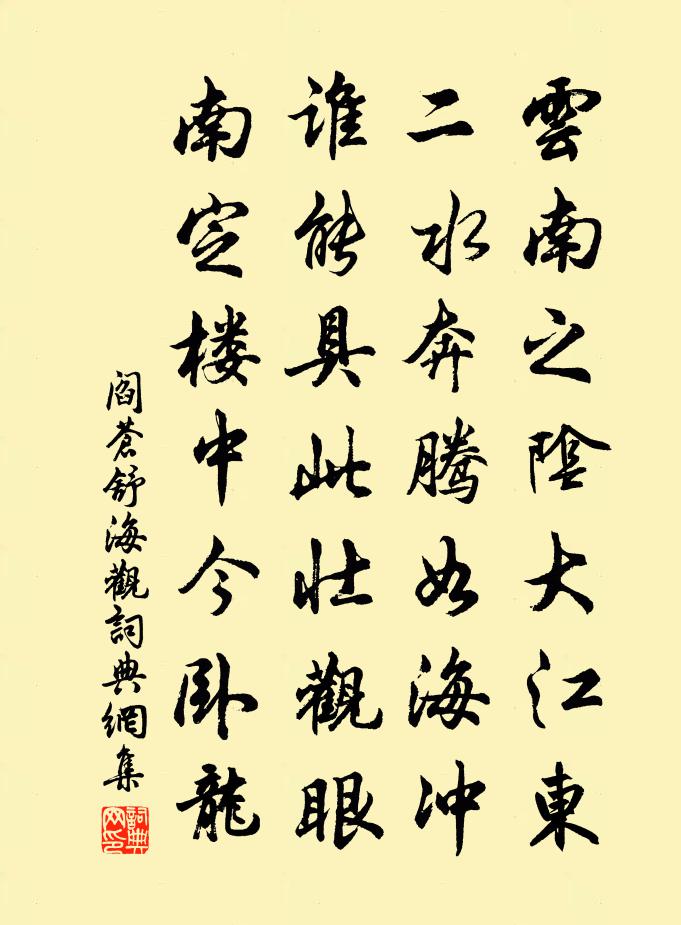 雲南之陰大江東
二水奔騰如海冲
谁能具此壮觀眼
南定楼中今卧龍
阎蒼舒海觀詞典網集
詞典網印